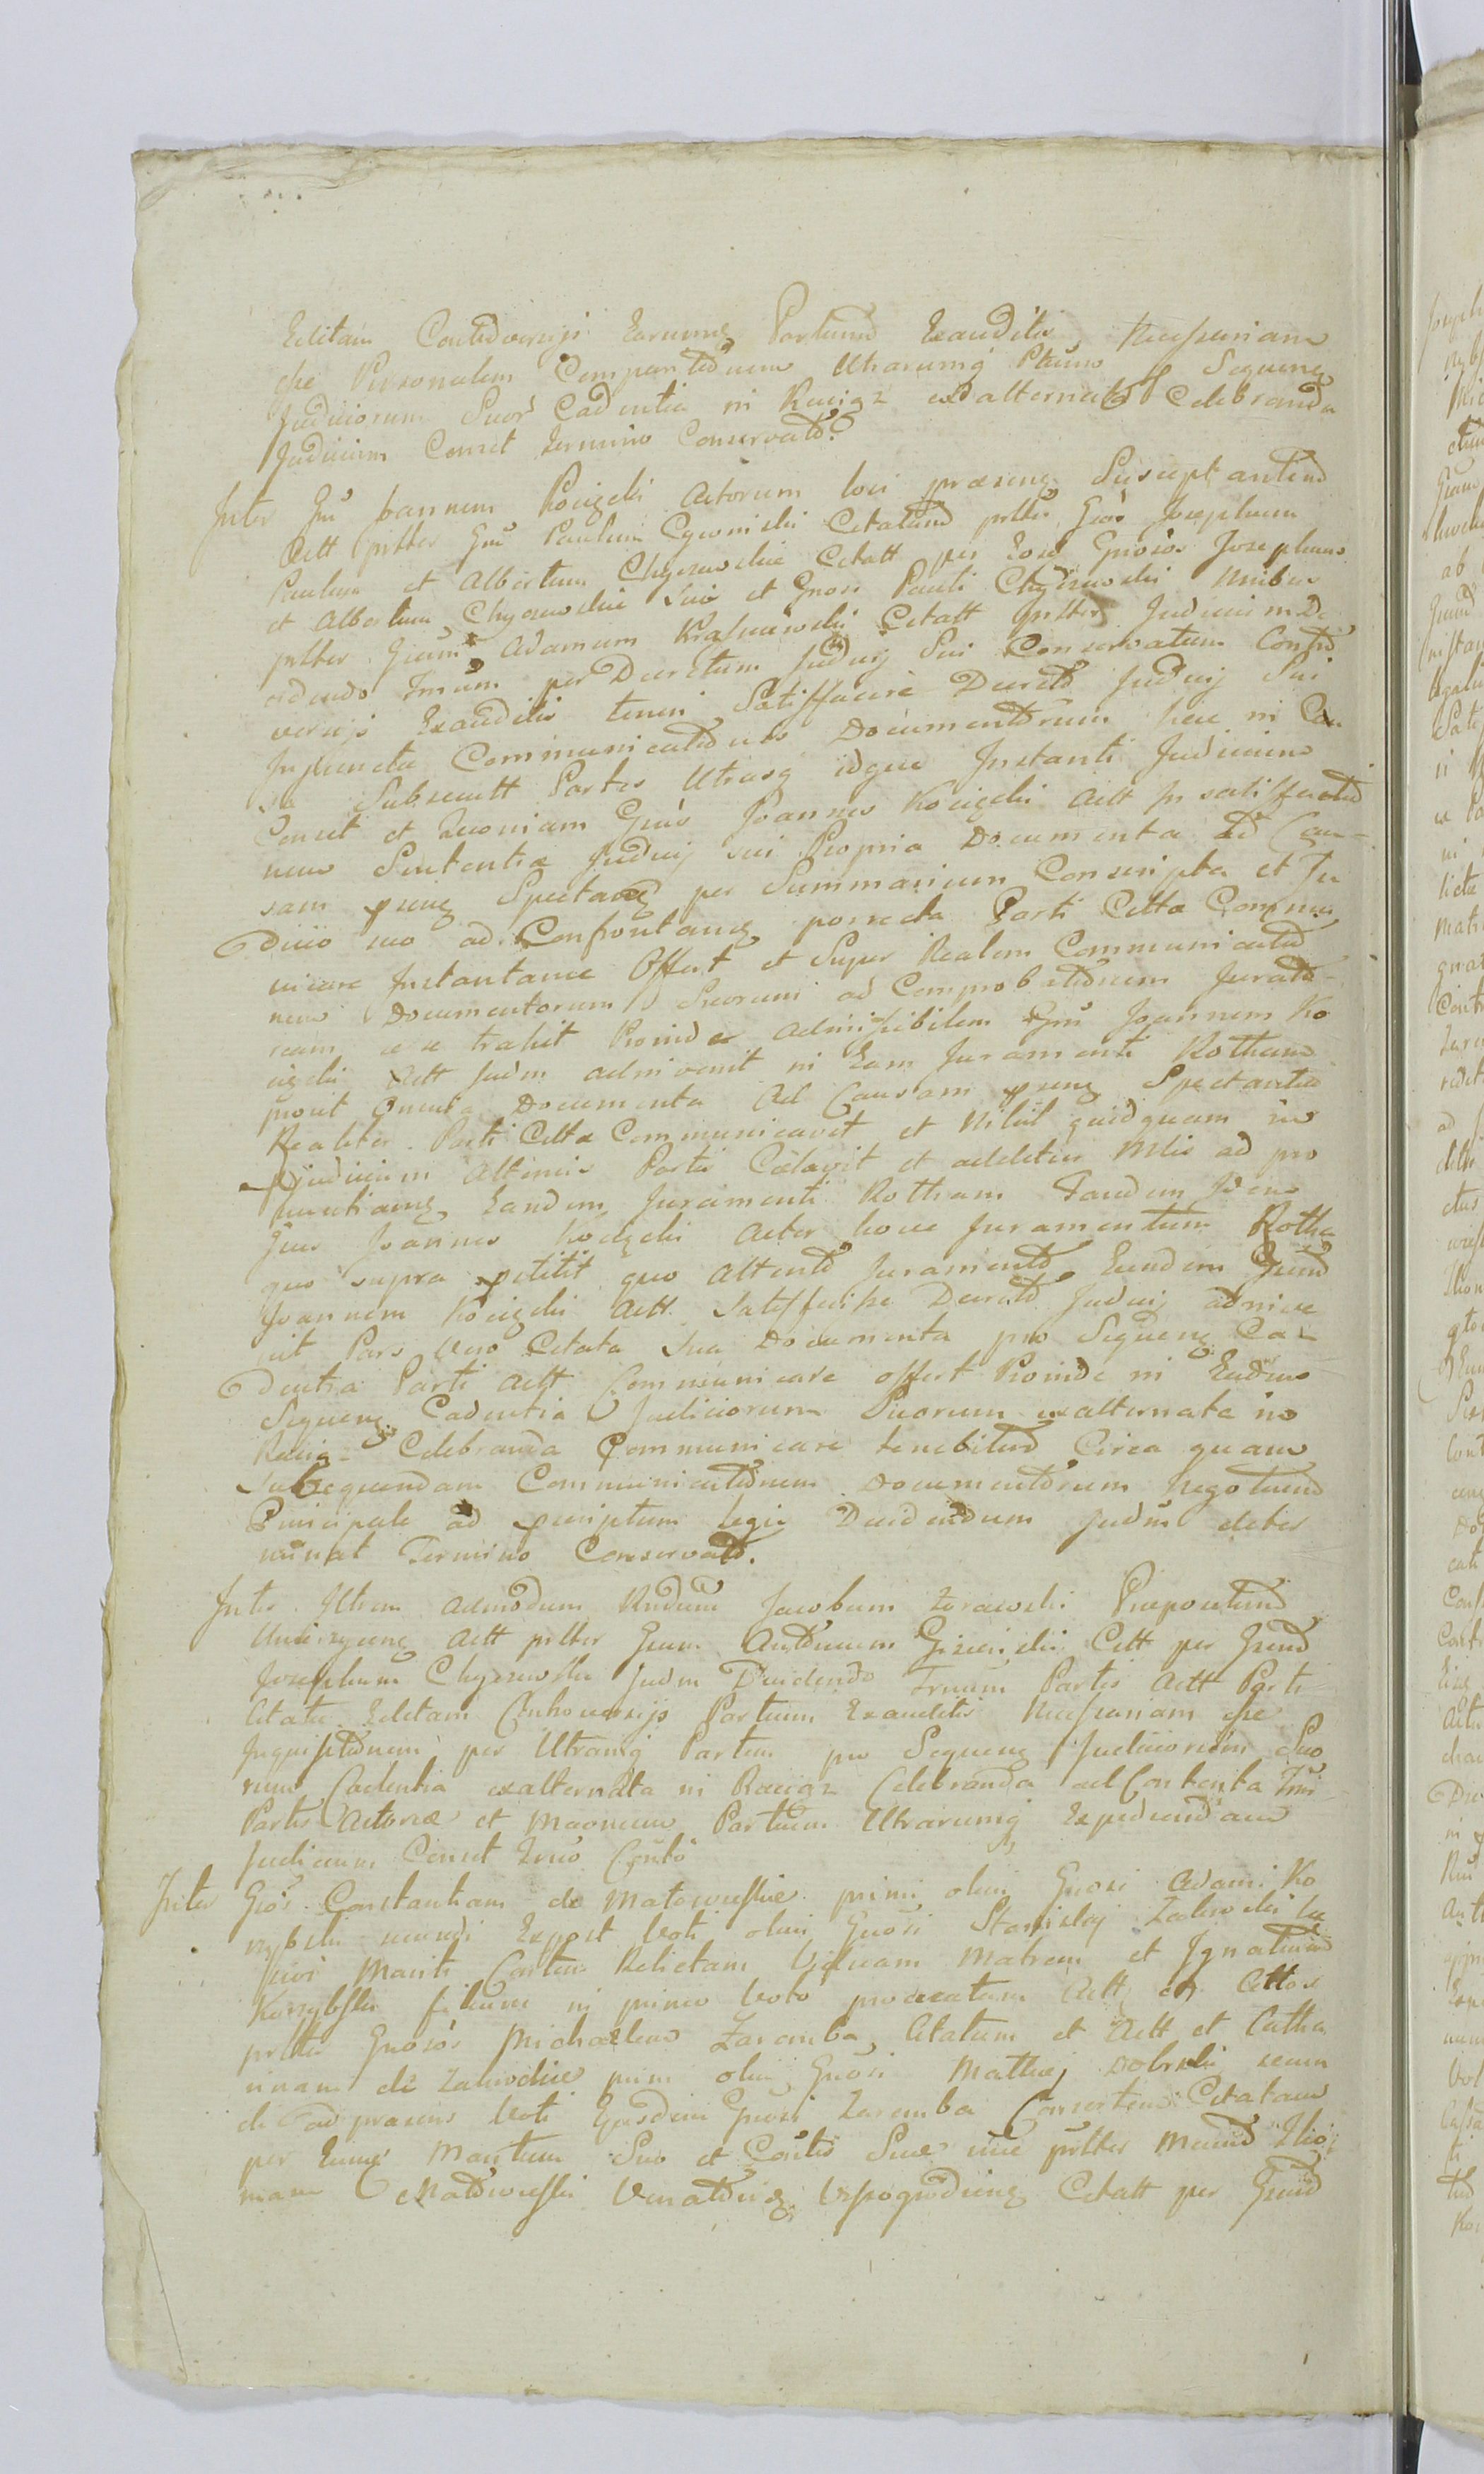 Editam Controversijs Earumq Partium Exauditis, Necessariam
esse Personalem Comparitionem Utrarumq Ptium Sequenq
Judiciorum Suor Cadentia in Raciąz exalternata Celebranda
Judicium Censet termino Conservato.
Inter Gm Joannem Kocięcki Actorum loci praesenq Susceptantem
Actt psltter Gm Paulum Cyworiski Citatum psltter Gsos Josephum
Paulum et Albertum Chyczewskie Citatt per Eosd Gnosos Josephum
et Albertum Chyczewskie Suo et Gnosi Pauli Chyczewski Nnibus
psltter Gsum Adamum Krasniewski Citatt psltter Judicium De
cidendo Trnum per Decretum Judcij Sui Conservatum Contro
versijs Exauditis teneri Satisfacere Decreto Judcij Sui
Injuncta Communicatione Documentorum hac in Cau
sa Subsecutt Partes Utrasq idque Instanti Judicium
Censet et Quoniam Gsus Joannes Kocięcki Actt In satisfactio
nem Sententiae Judcij sui Propria Documenta ad Cau-
sam psenq Spectanq per Summarium Conscripta et Ju
dicio suo ad Confrontanq porrecta Parti Cittae Commu
nicare Instantanee Offert et Super Realem Communicatio
nem Documentorum Suorum ad Comprobationem Jurato-
riam se se trahit Proinde Admissibilem Gm Joannem Ko
cięcki Actt Judm adinvenit in Eam Juramenti Rotham
prout Omnia Documenta Ad Causam psenq Spectantia
Realiter Parti Cittae Communicavit et Nihil quidquam in
pjudicium Alterius Partis Caelavit et addetur Mtlis ad pro
nunctianq Eandem Juramenti Rotham Tandem Idem
Gsus Joannes Kocięcki Actor hocce Juramentum Rotha
quo supra pstitit quo Attento Juramento Eundem Gsum
Joannem Kocięcki Actt Satisfecisse Decreto Judcij adnive
nit Pars Vero Citata Sua Documenta pro Sequenq Ca-
dentia Parti Actt Communicare offert Proinde in Eadem
Sequenq Cadentia Judiciorum Suorum exalternata in
Raciąz Celebranda Communicare tenebitur Circa quam
Subsequendam Communicationem Documentorum Negotium
Principale ad pscriptum legis Decidendum Judm deter
minat Termino Conservato.
Inter Illrem Admodum Rndum Jacobum Żórawski Praepositum
Unierzyenq Actt psltter Gsum Antonium Gizinski Citt per Gsum
Josephum Chyczewski Judm Decidendo Trnum Partis Actt Parti
Citatae Editam Controversijs Partium Exauditis Necessariam esse
Inquisitionem per Utramq Partem pro Sequenq Judiciorum Suo
rum Cadentia exalternata in Raciąz Celebranda ad Contenta Trni
Partis Actoreae et Partium Utrarumq Expediendam
Judicium Censet Trno Cnto
Inter Gsos Constantiam de Matowieskie primi olim Gnosi Adami Ko
rzybski secundi Expost Voti olim Gnosi Stanislaj Zaliwski
Mariti Contem Relictam Viduam Matrem et Ignatium
Korzybski filium in primo Voto procreatum Actt et Cittos
psltter Gnosos Michaelem Zaremba Citatum et Actt et Catha
rinam de Zaliwskie primi olim Gnosi Matthej Dobrski secun
di ad praesens Voti Ejusdem Gnosi Zaremba Consortem Citatam
per Eumq Maritum Suo et Contis Suae nne psltter Mcum Tho
mam Matowieski Venatorem Wyszogrodienq Citatt per Gsum